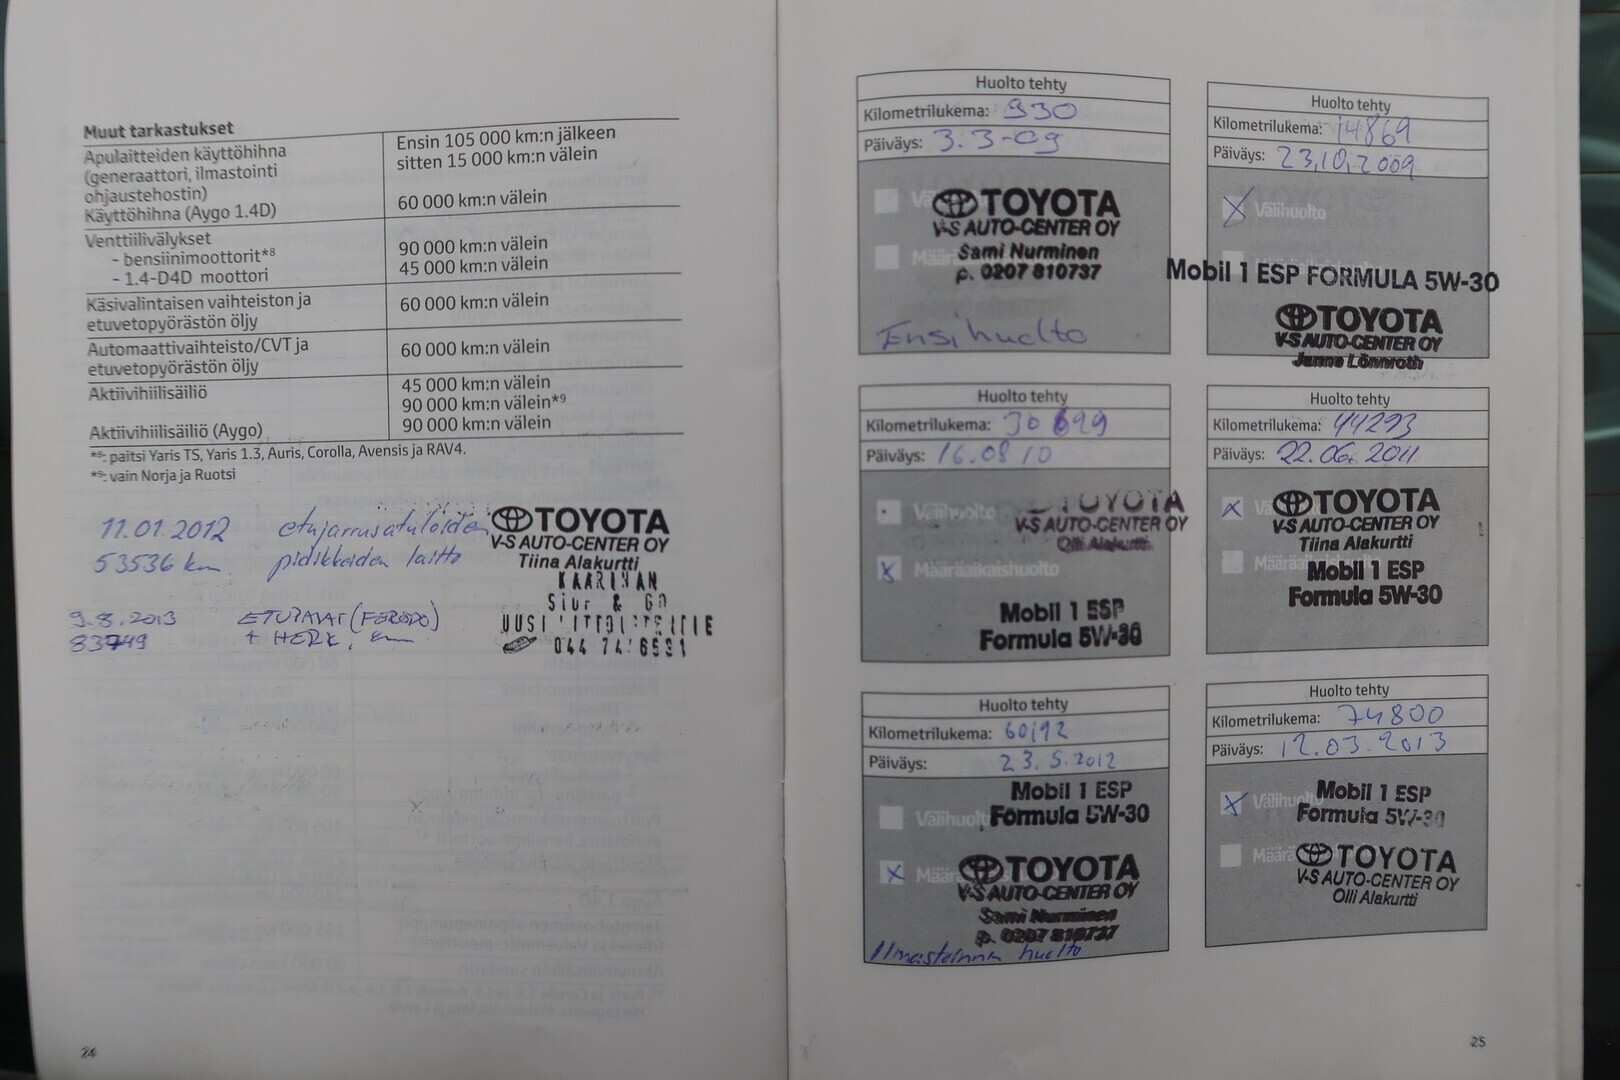 Muut tarkastukset
Apulaitteiden käyttöhihna
(generaattori, ilmastointi
ohjaustehostin)
Käyttöhihna (Aygo 1.4D)
Ensin 105 000 km:n jälkeen
sitten 15 000 km:n välein
60 000 km:n välein
Venttiilivälykset
- bensiinimoottorit*8
- 1.4-D4D moottori
90 000 km:n välein
45 000 km:n välein
Käsivalintaisen vaihteiston ja
etuvetopyörästön öljy
60 000 km:n välein
Automaattivaihteisto/CVT ja
etuvetopyörästön öljy
60 000 km:n välein
Aktiivihiilisäiliö
Aktiivihiilisäiliö (Aygo)
45 000 km:n välein
90 000 km:n välein*9
90 000 km:n välein
*8: paitsi Yaris TS, Yaris 1.3, Auris, Corolla, Avensis ja RAV4.
*9: vain Norja ja Ruotsi
11.01.2012 etujarrusatuloiden
53536 km pidikkeiden laitto
TOYOTA
V-S AUTO-CENTER OY
Tiina Alakurtti
KAARINAN
9.8.2013 ETUPALAT (FERODO)
83749 + HERK.
24
Huolto tehty
Kilometrilukema: 930
Päiväys: 3.3-09
TOYOTA
V-S AUTO-CENTER OY
Sami Nurminen
p. 0207 810737
Ensihuolto
Huolto tehty
Kilometrilukema: 14869
Päiväys: 23.10.2009
Välihuolto
Mobil 1 ESP FORMULA 5W-30
TOYOTA
V-S AUTO-CENTER OY
Janne Lönnroth
Huolto tehty
Kilometrilukema: 30699
Päiväys: 16.08 10
Välihuolto
TOYOTA
V-S AUTO-CENTER OY
Olli Alakurtti
Määräaikaishuolto
Mobil 1 ESP
Formula 5W-30
Huolto tehty
Kilometrilukema: 44293
Päiväys: 22.06.2011
TOYOTA
V-S AUTO-CENTER OY
Tiina Alakurtti
Mobil 1 ESP
Formula 5W-30
Huolto tehty
Kilometrilukema: 60192
Päiväys: 23.5.2012
Mobil 1 ESP
Välihuolto Formula 5W-30
TOYOTA
V-S AUTO-CENTER OY
Sami Nurminen
p. 0207 810737
Ilmastoinnin huolto
Huolto tehty
Kilometrilukema: 74800
Päiväys: 12.03.2013
Välihuolto Mobil 1 ESP
Formula 5W-30
TOYOTA
V-S AUTO-CENTER OY
Olli Alakurtti
25